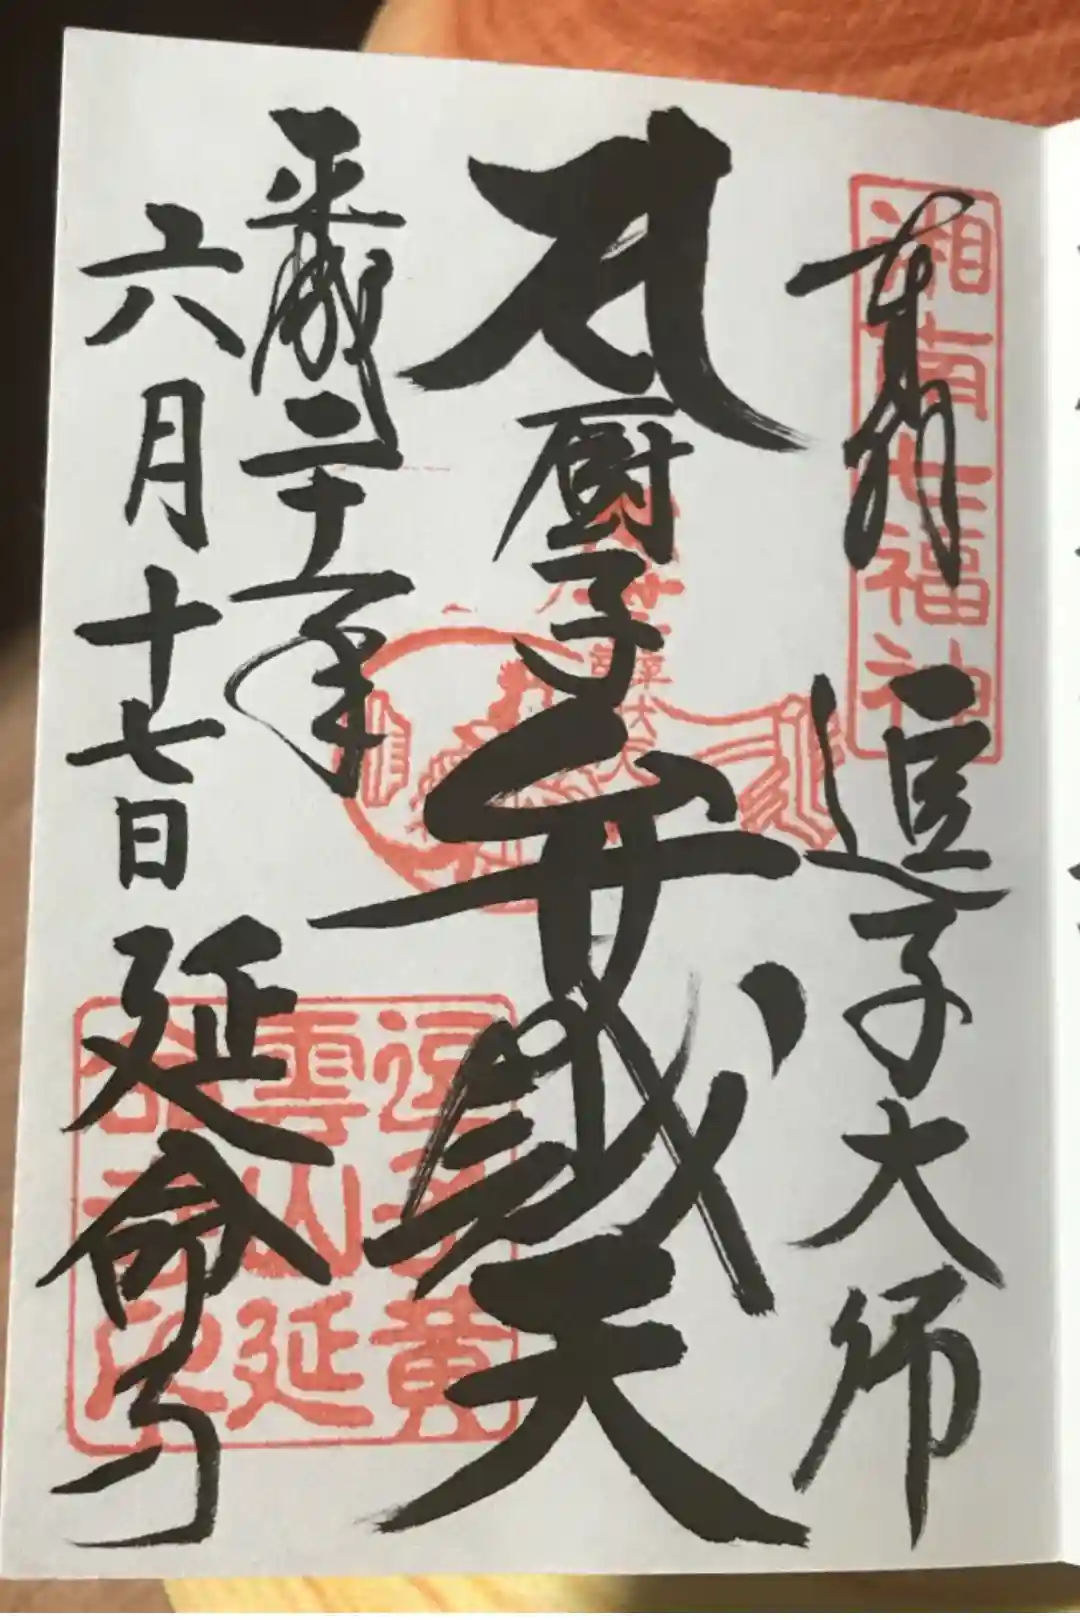 湘南七福神
奉拝 逗子大師
厨子弁財天
平成 年
六月十七日 延命寺
逗子黄
雲山延
命寺印